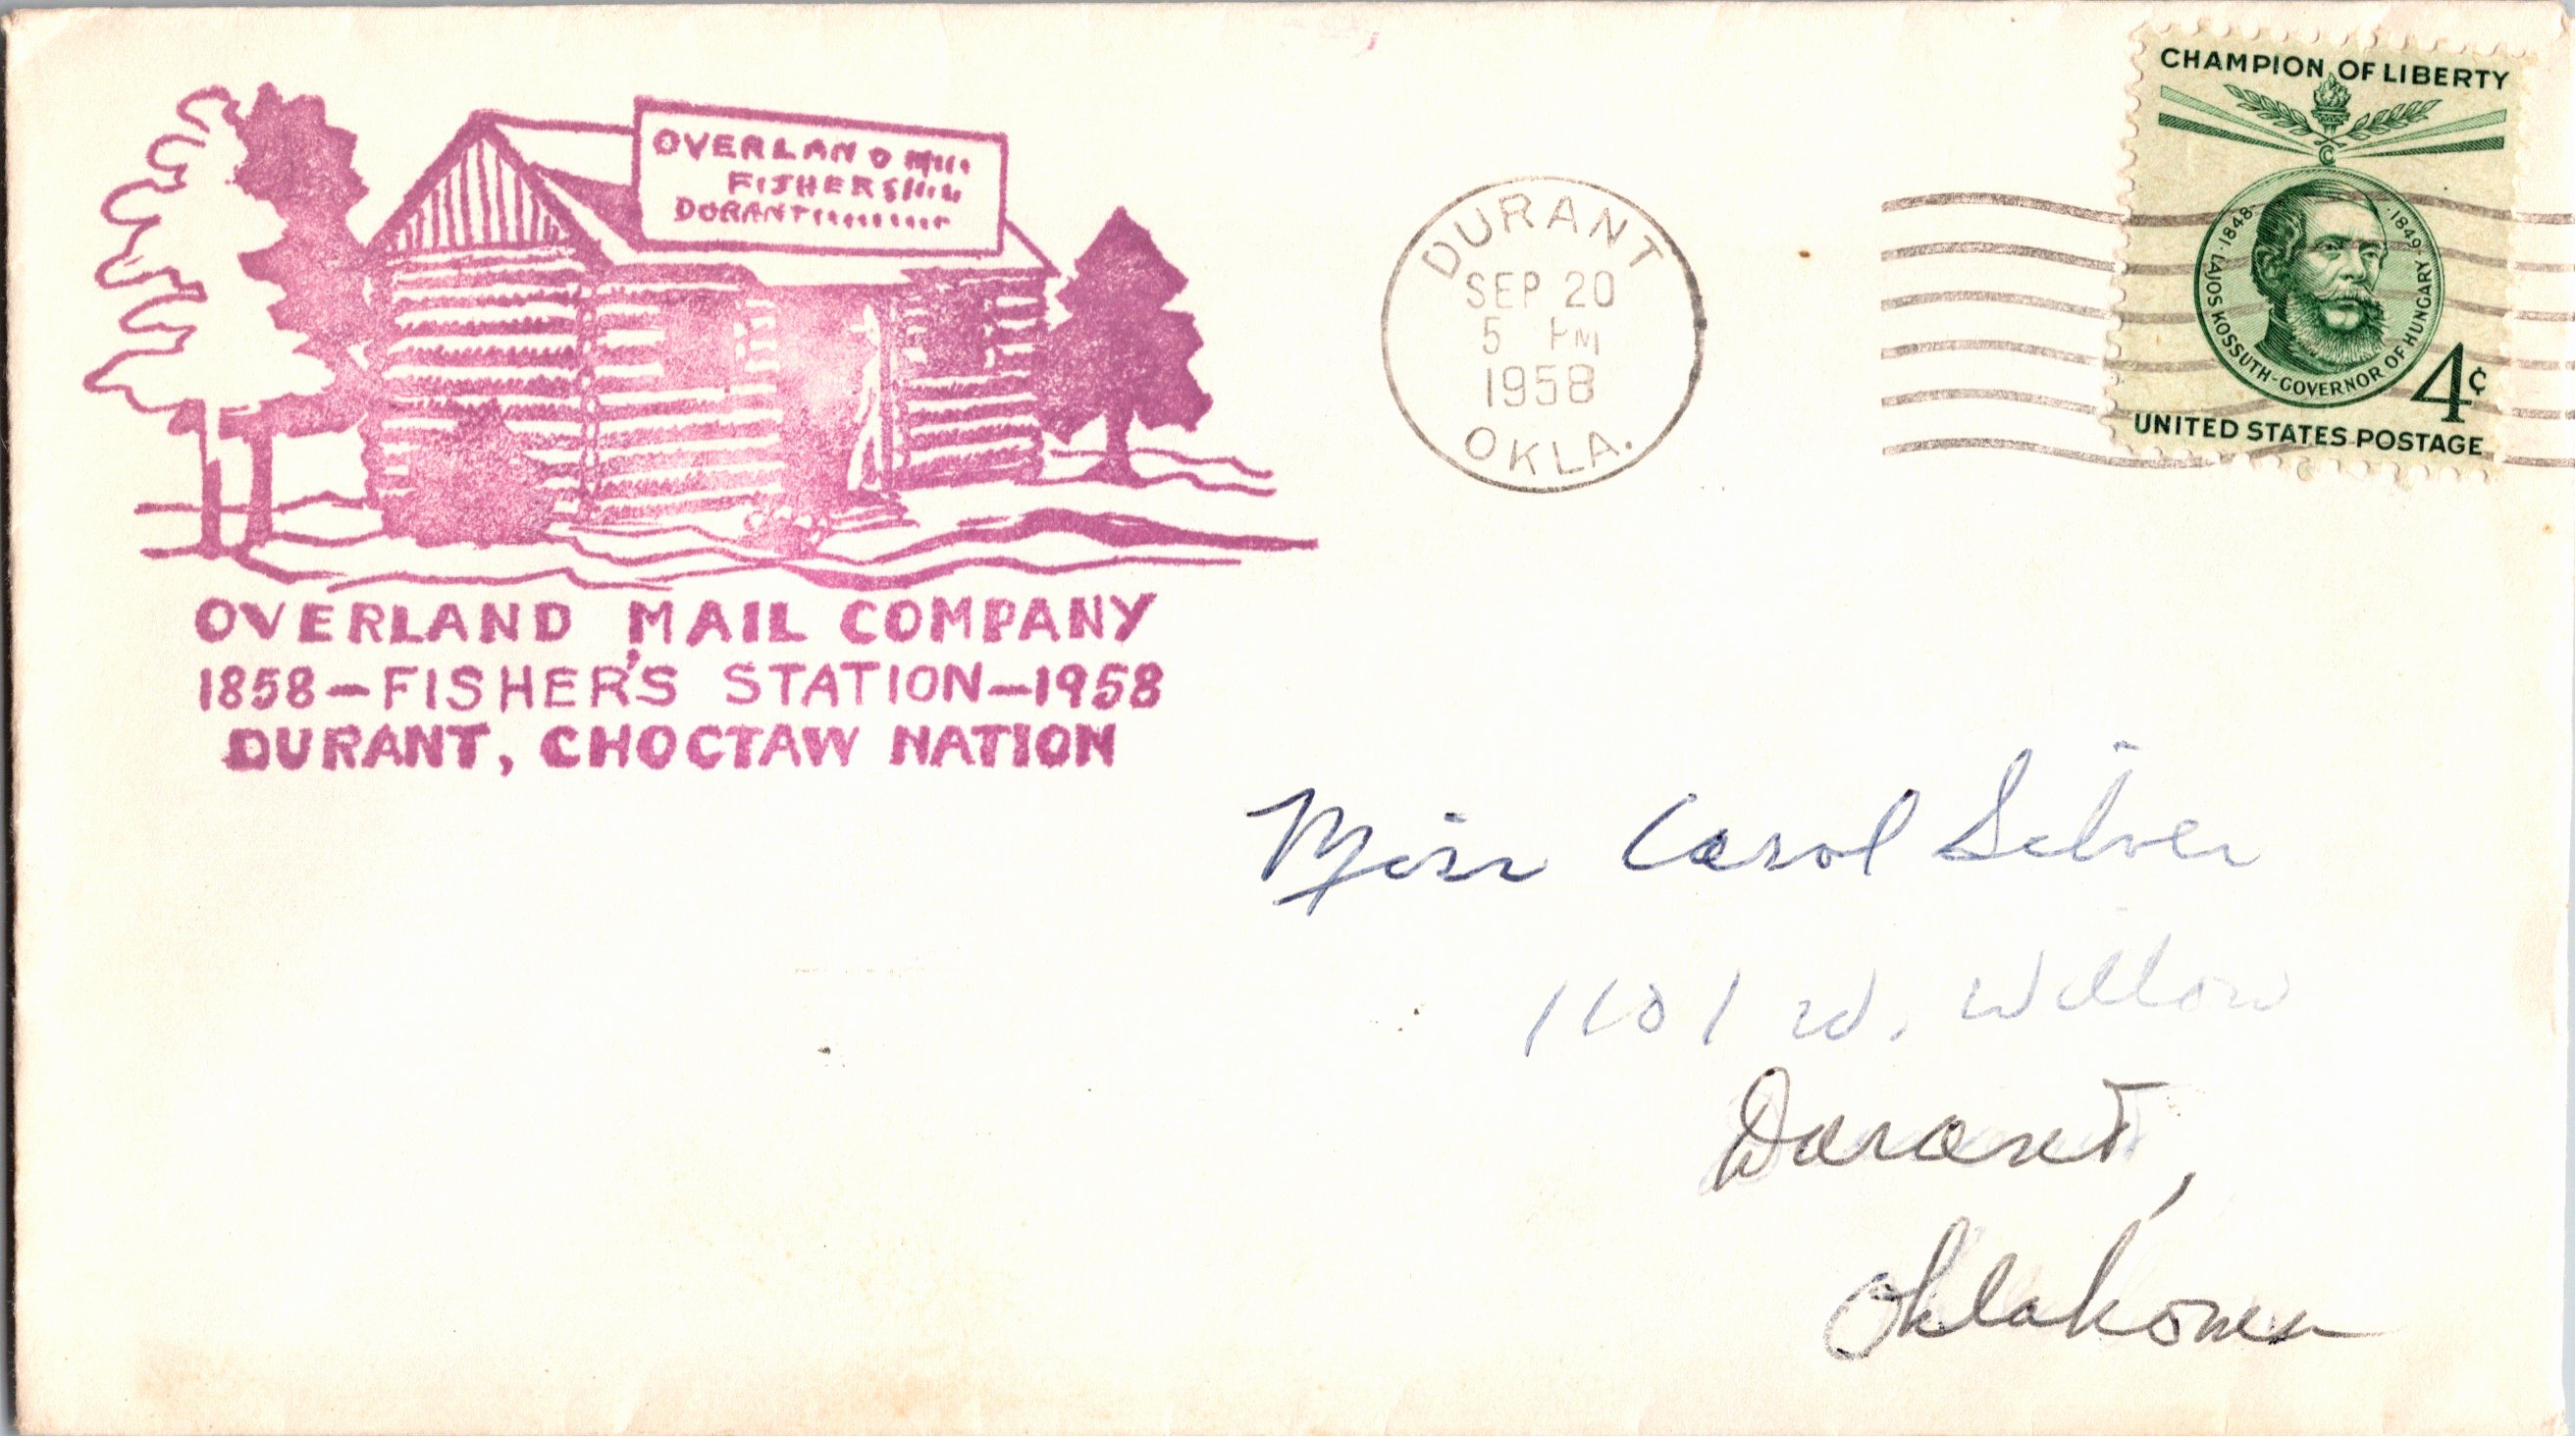 OVERLAND
FISHERS
DURANT
OVERLAND MAIL COMPANY
1858-FISHER'S STATION-1958
DURANT, CHOCTAW NATION
DURANT
SEP 20
5 PM
1958
OKLA.
CHAMPION OF LIBERTY
·1848· ·1849·
LAJOS KOSSUTH-GOVERNOR OF HUNGARY
4¢
UNITED STATES POSTAGE
Miss Carol Silver
1101 W. Willow
Durant,
Oklahoma